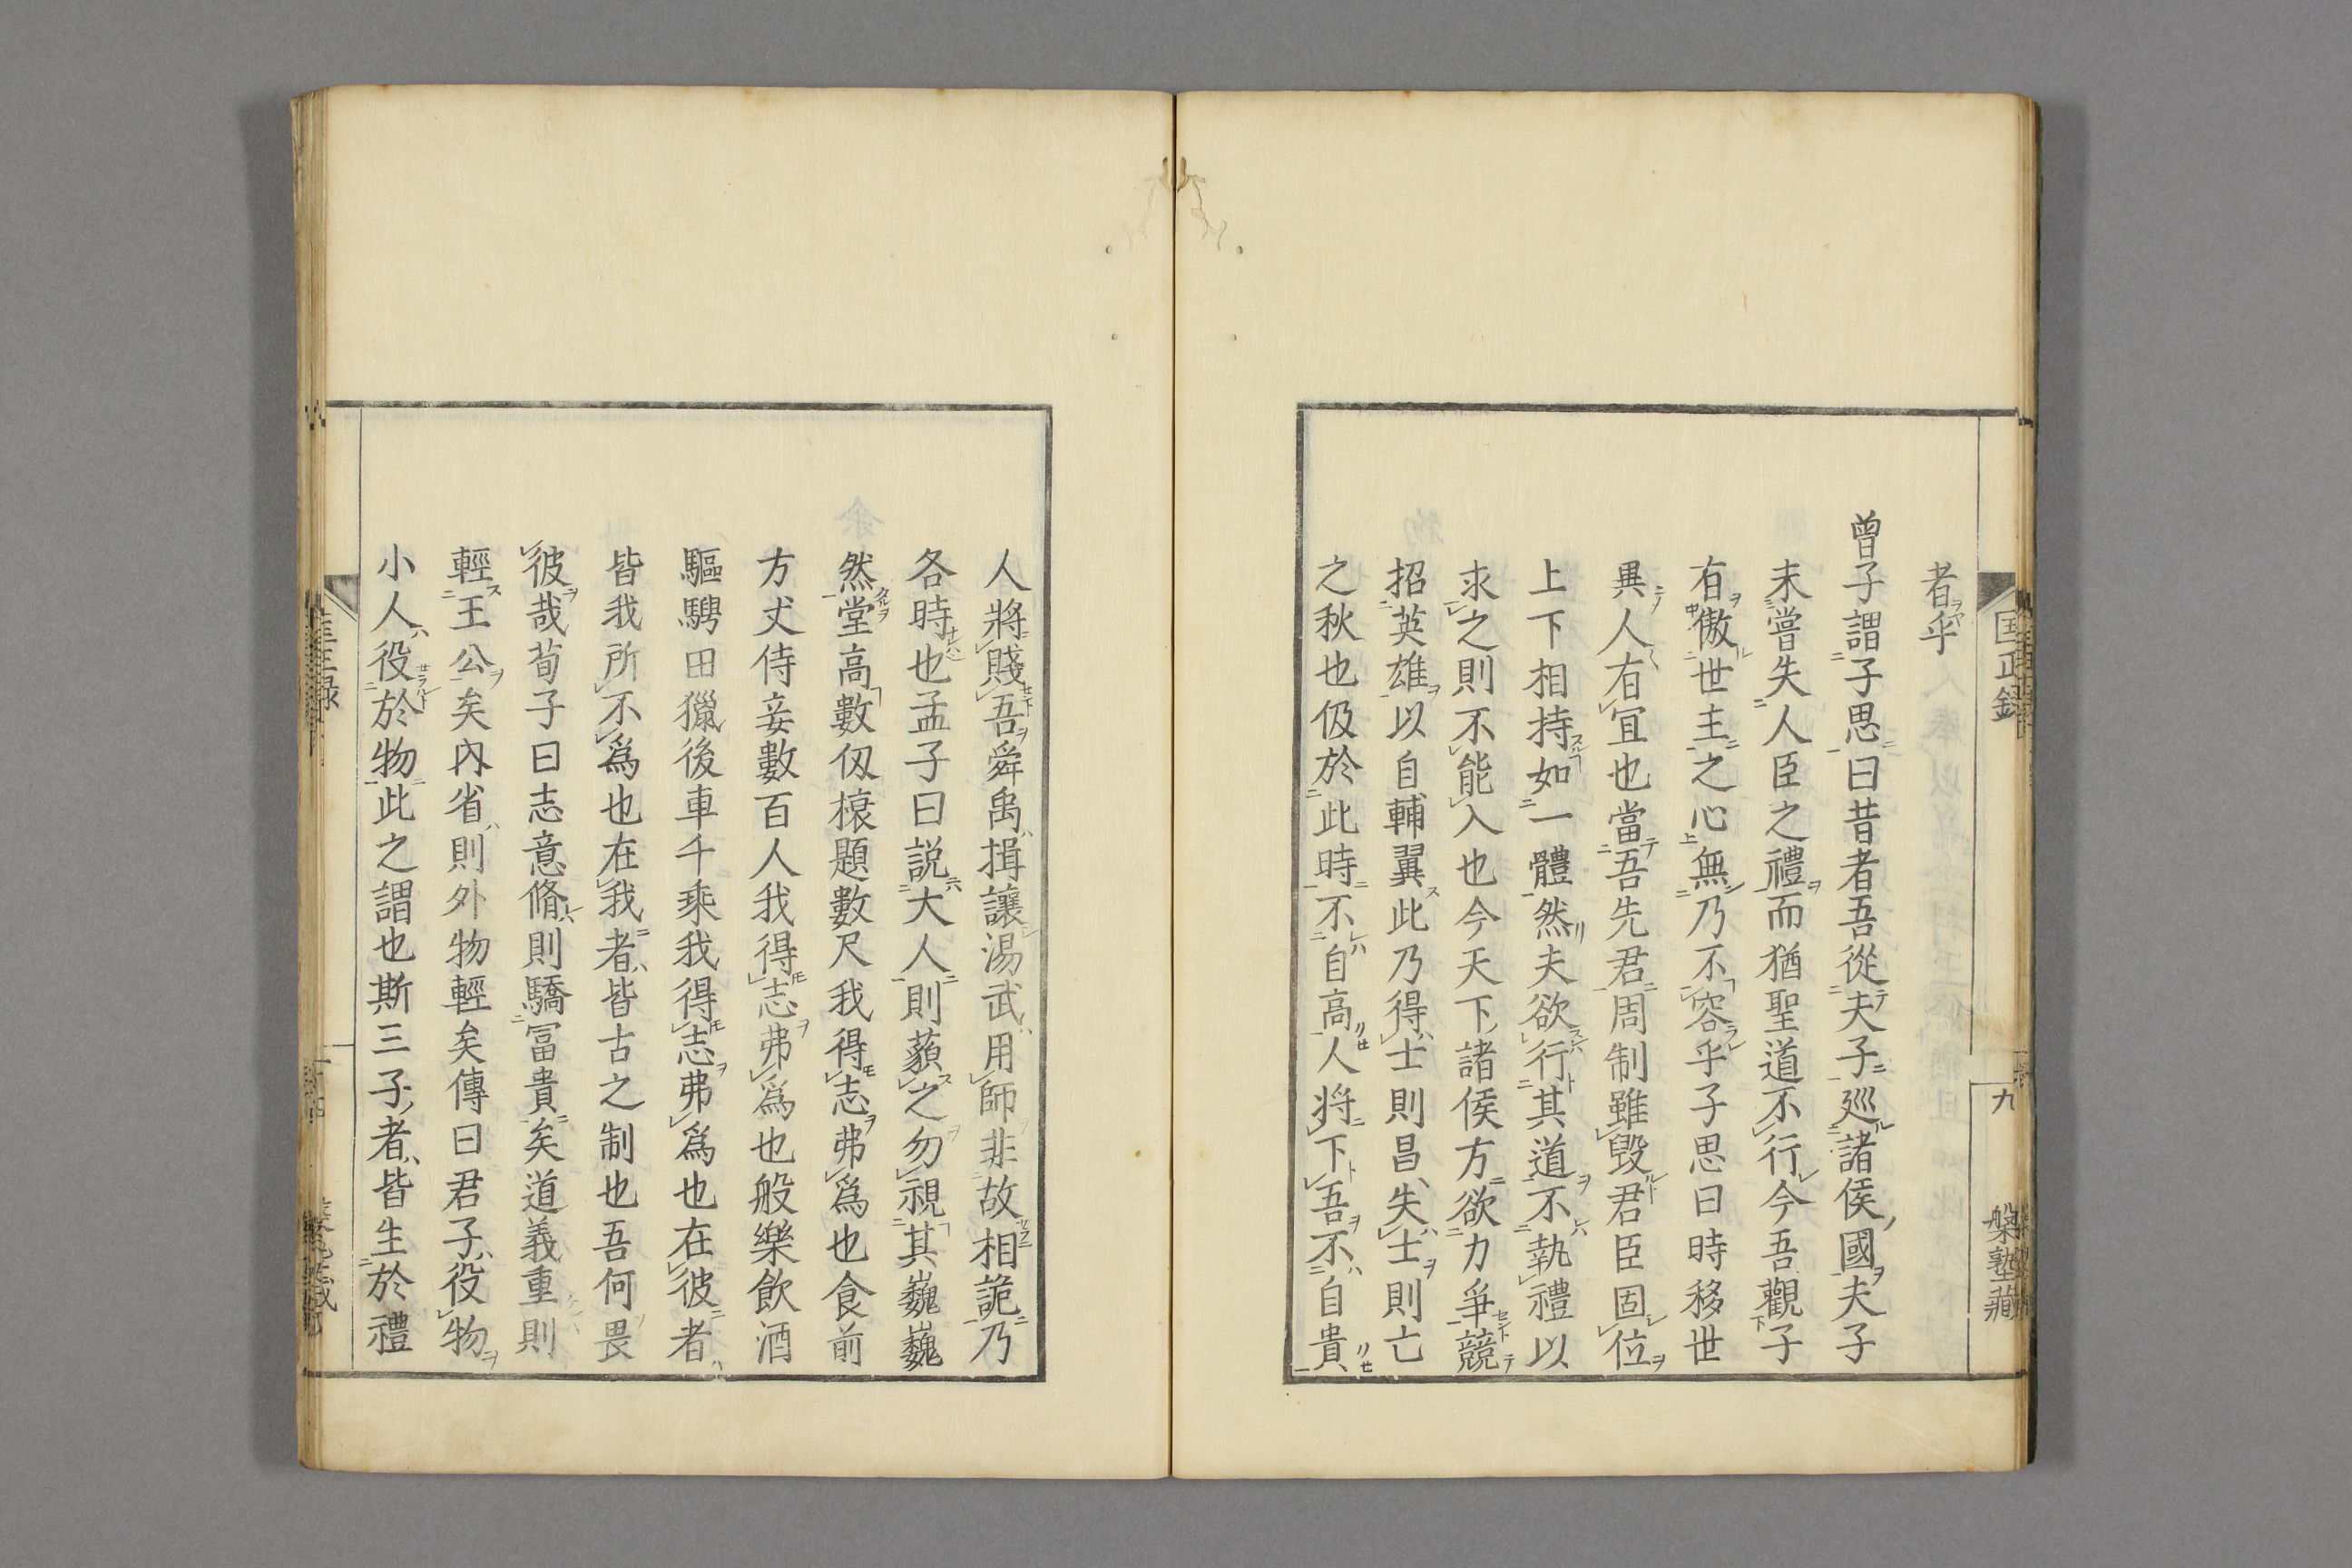 者乎
曾子謂子思曰昔者吾從夫子巡諸侯國夫子
未嘗失人臣之禮而猶聖道不行今吾觀子
有傲世主之心無乃不容乎子思曰時移世
異人有宜也當吾先君周制雖毀君臣固位
上下相持如一體然夫欲行其道不執禮以
求之則不能入也今天下諸侯方欲力爭競
招英雄以自輔翼此乃得士則昌失士則亡
之秋也伋於此時不自高人將下吾不自貴
人將賤吾舜禹揖讓湯武用師非故相詭乃
各時也孟子曰説大人則藐之勿視其巍巍
然堂高數仭榱題數尺我得志弗爲也食前
方丈侍妾數百人我得志弗爲也般樂飲酒
驅騁田獵後車千乘我得志弗爲也在彼者
皆我所不爲也在我者皆古之制也吾何畏
彼哉荀子曰志意脩則驕冨貴矣道義重則
輕王公矣內省則外物輕矣傳曰君子役物
小人役於物此之謂也斯三子者皆生於禮
九
槃塾藏